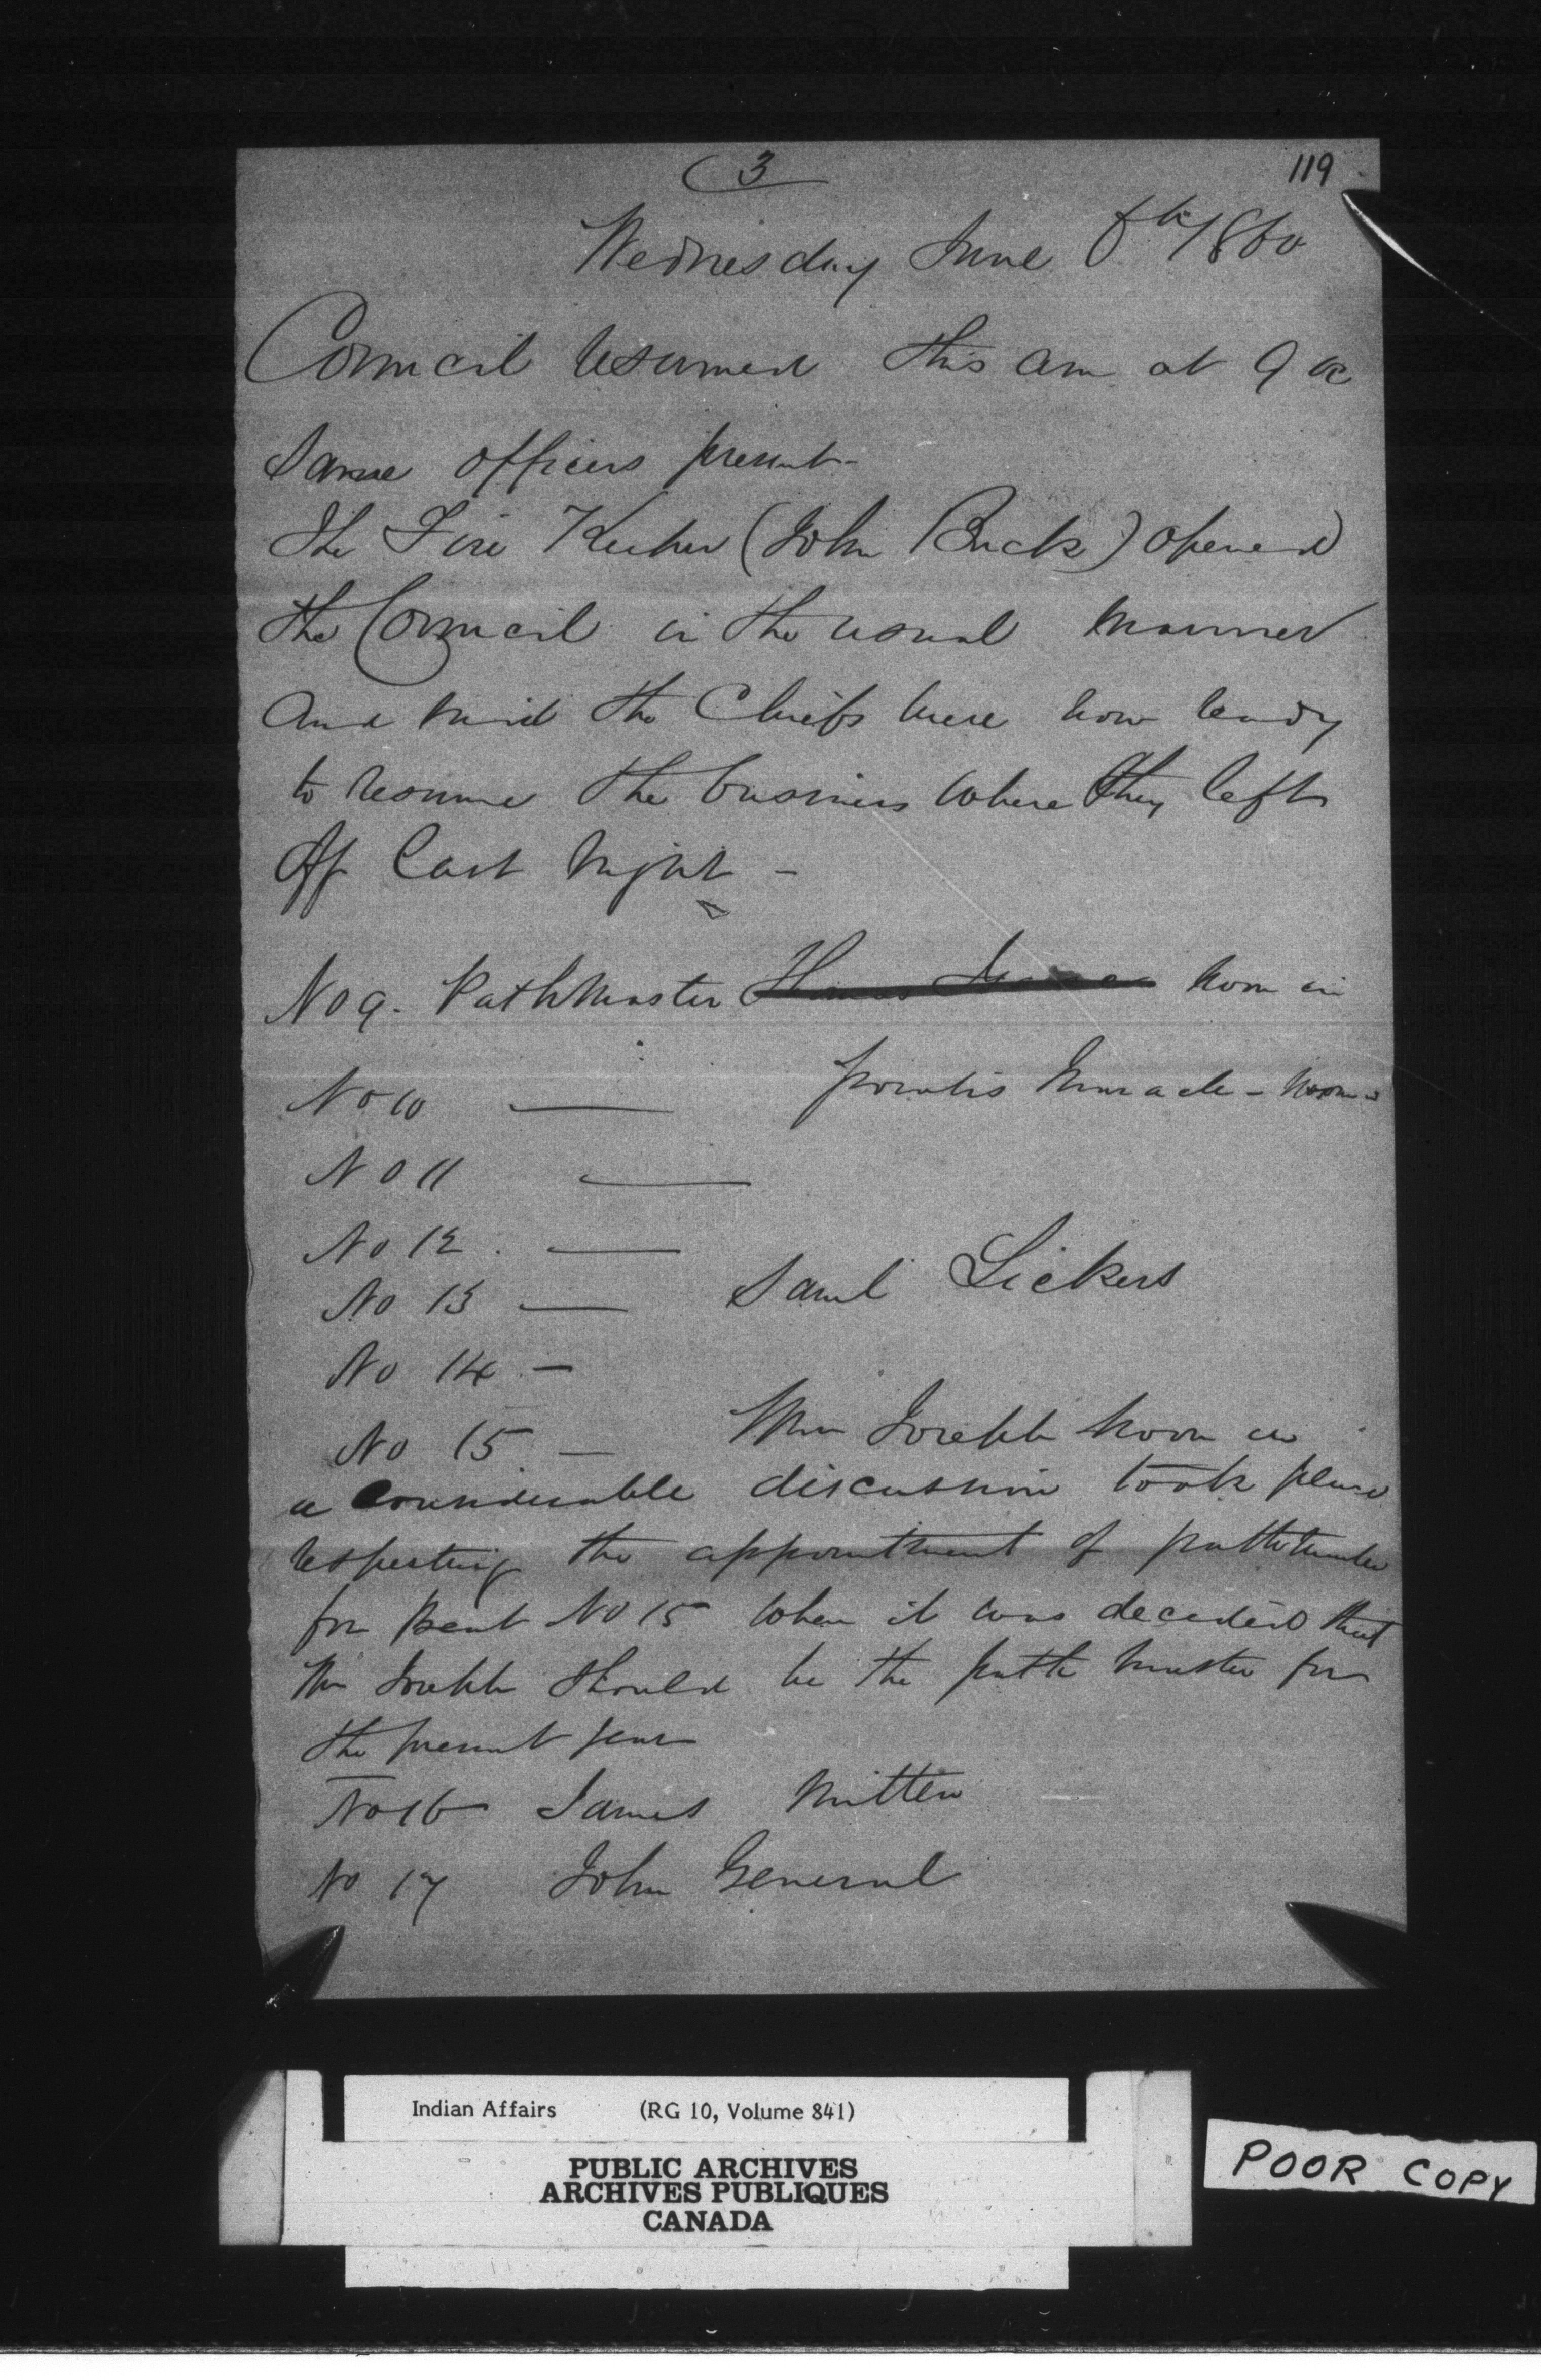 3
119
Wednesday June 6th 1860
Council resumed this am at 9 oc
Same officers present-
The Fire Keeper (John Buck) opened
the Council in the usual manner
and said the Chiefs were now ready
to resume the business where they left
off last night -
No 9. Pathmaster nom in
No 10 — Miracle - nom
No 11 —
No 12. —
No 13 — Saml Lickers
No 14 -
No 15 - Wm Joseph nom in
a considerable discussion took place
respecting the appointment of pathmaster
for Beat No 15 when it was decided that
Wm Joseph should be the path master for
the present year
No 16 James Mitten
No 17 John General
Indian Affairs (RG 10, Volume 841)
PUBLIC ARCHIVES
ARCHIVES PUBLIQUES
CANADA
POOR COPY